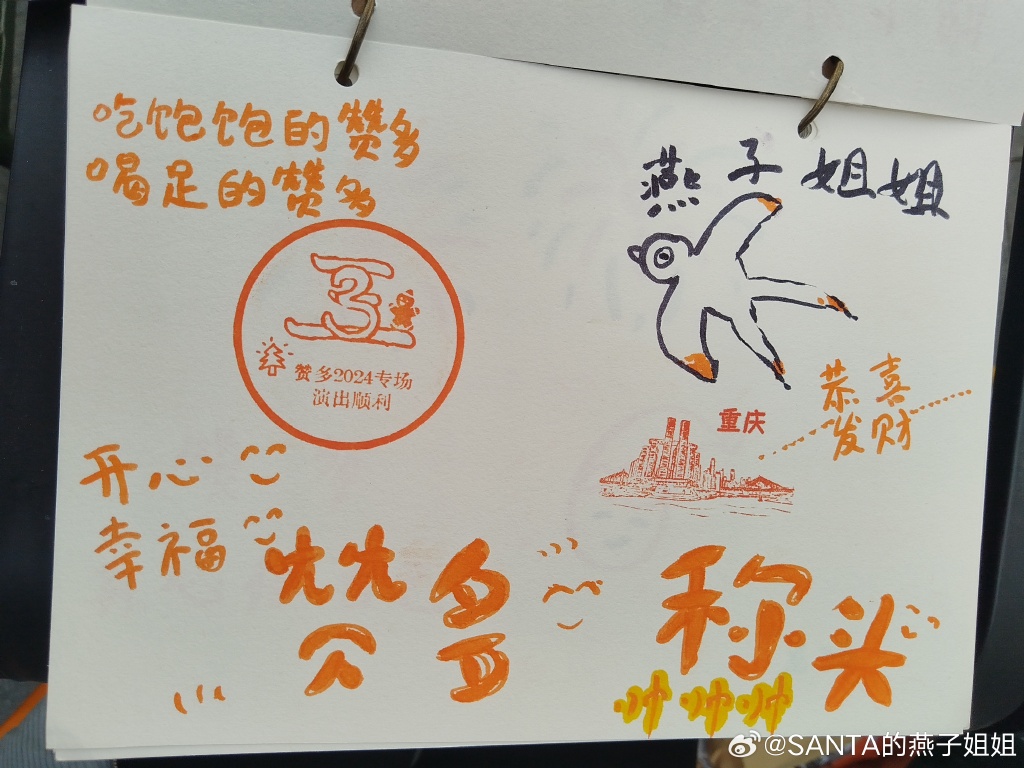 吃饱饱的赞多
喝足的赞多
燕子姐姐
3
赞多2024专场
演出顺利
恭喜
发财
重庆
开心
幸福
赞多
称头
帅帅帅
@SANTA的燕子姐姐